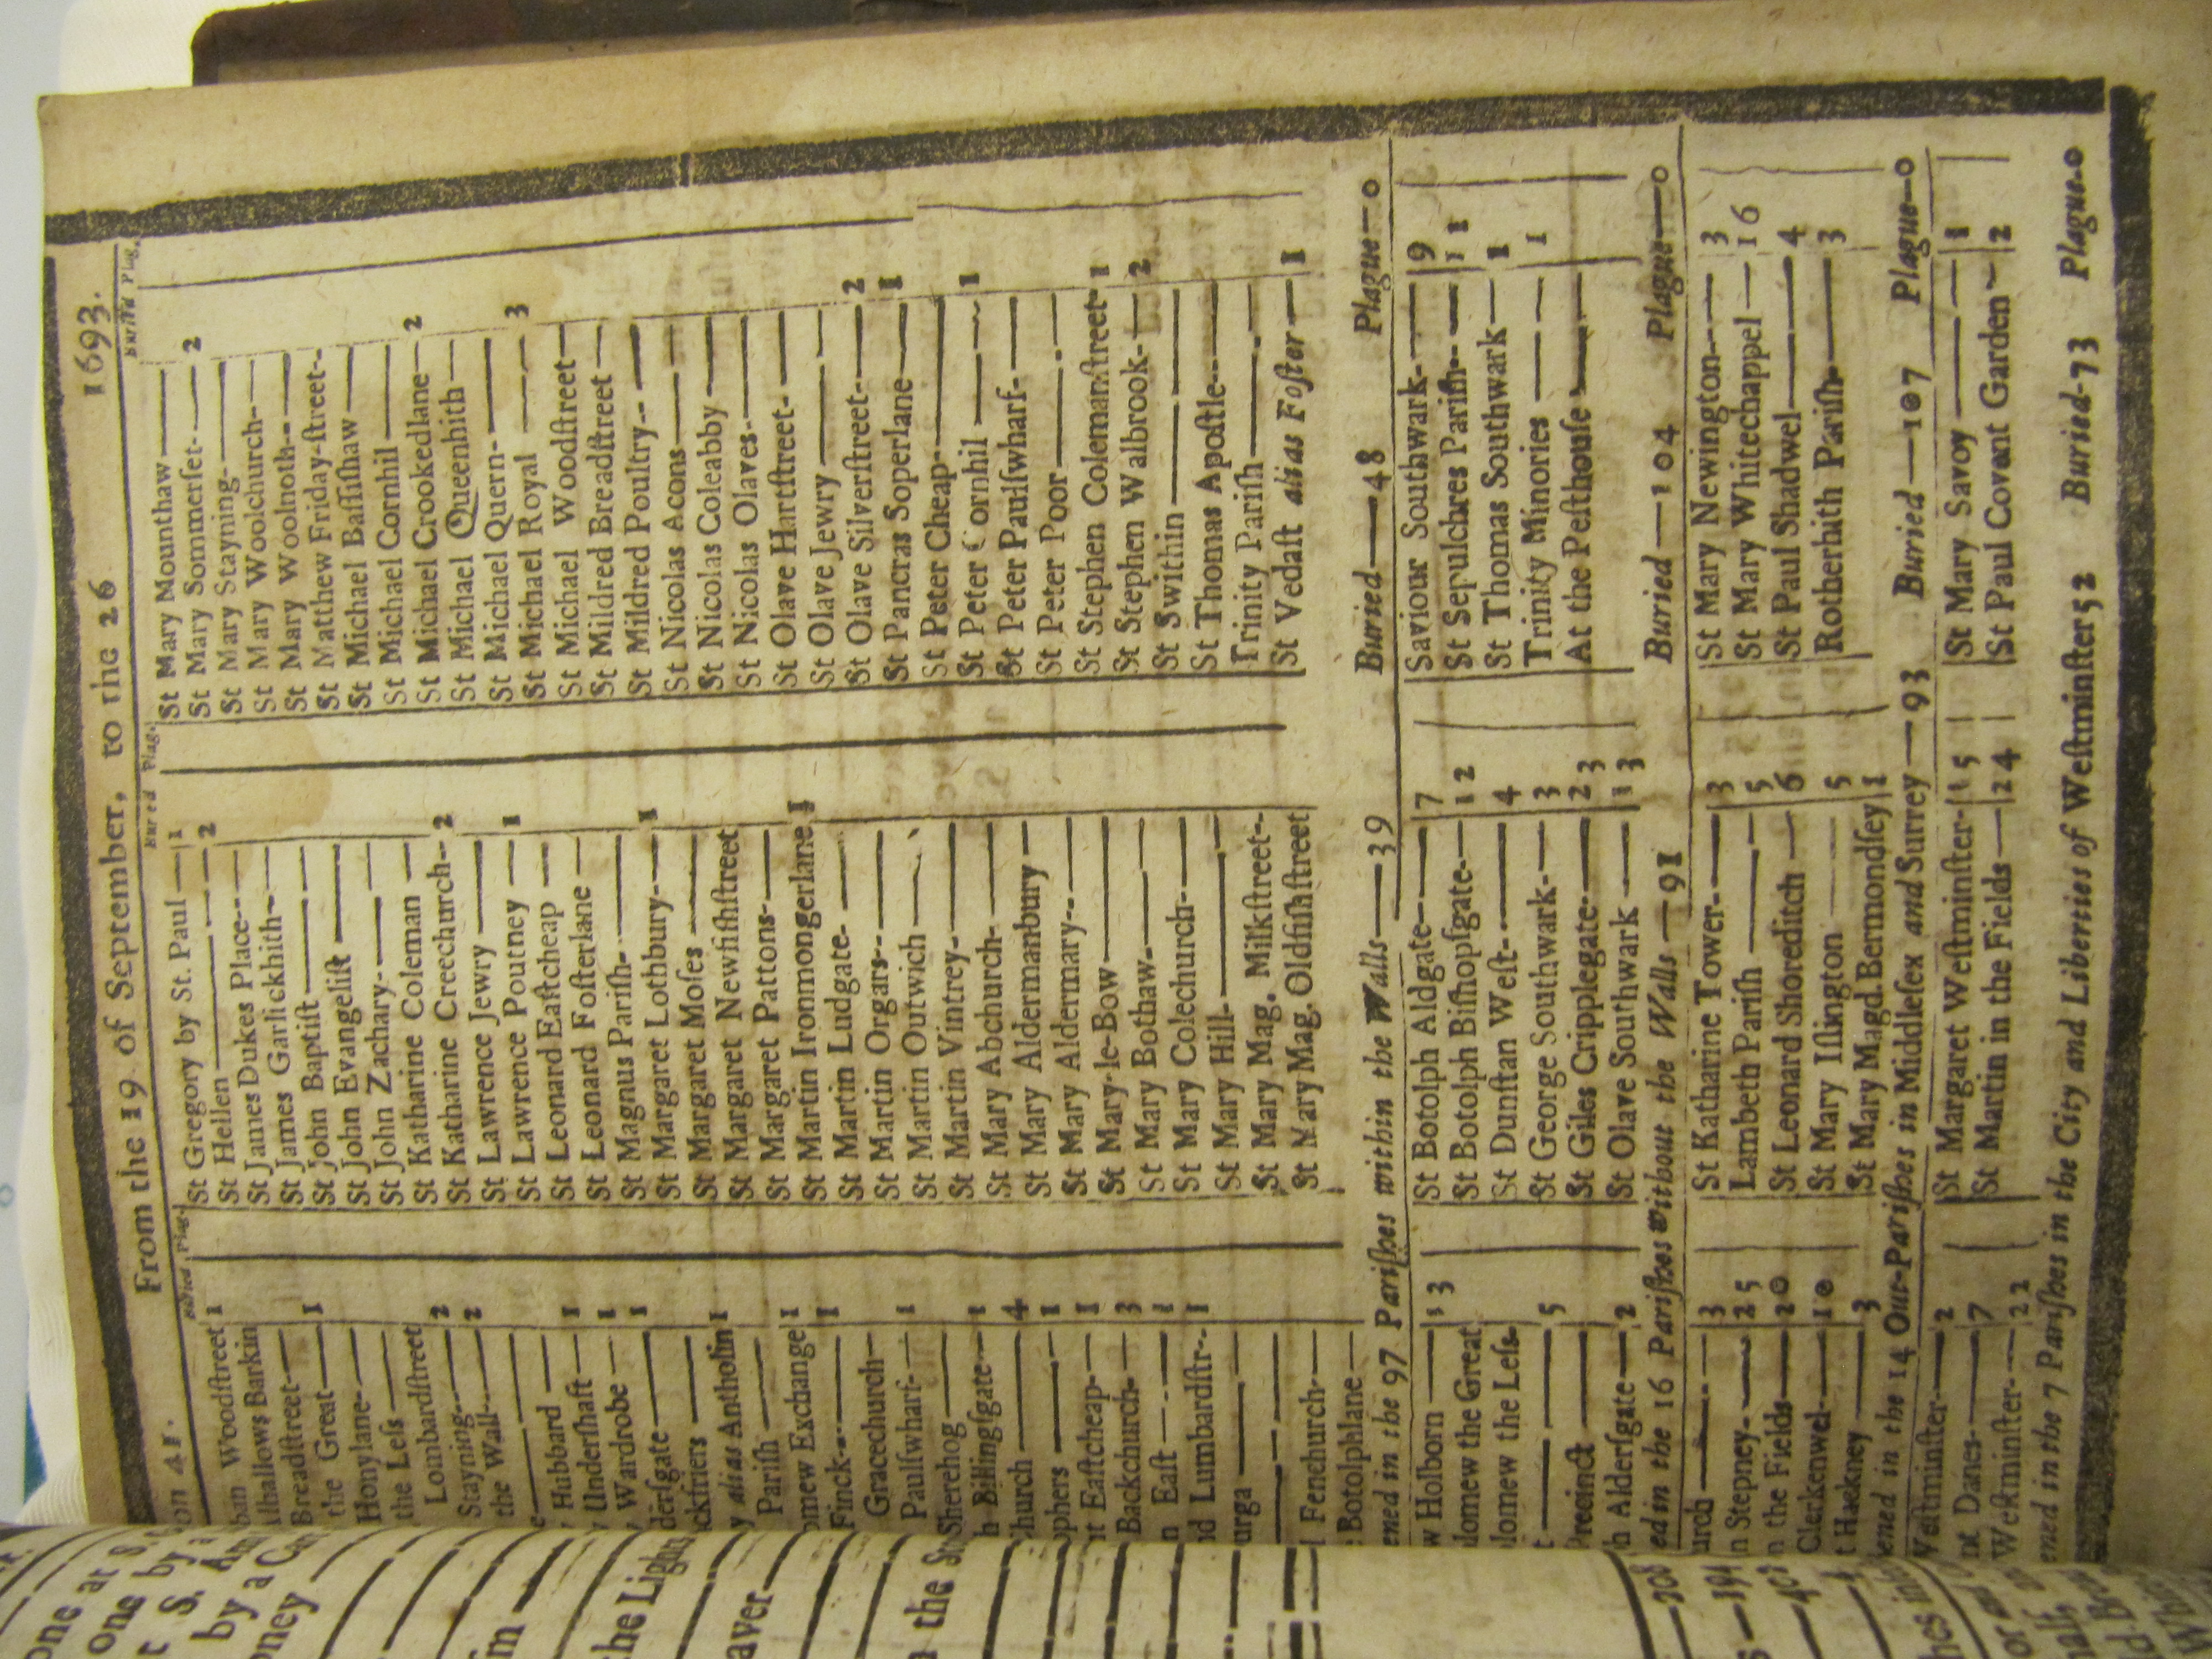 on 41. From the 19 of September, to the 26 1693.
Buried Plag.
Woodſtreet 1
lhallows Barkin
Breadſtreet
the Great 1
Honylane
the Leſs
Lombardſtreet 2
Stayning 2
the Wall
Hubbard 1
Underſhaft 1
Wardrobe 1
derſgate
ckfriers
alias Antholin 1
Pariſh
omew Exchange 1
Finck 1
Gracechurch
Paulſwharf 1
Sherehog
h Billingſgate 1
hurch 4
ophers 1
nt Eaſtcheap 1
Backchurch 3
n Eaſt 1
nd Lumbardſtr 1
urga
l Fenchurch
Botolphlane
Buried Plag.
St Gregory by St. Paul 1
St Hellen 2
St James Dukes Place
St James Garlickhith
St John Baptiſt
St John Evangeliſt
St John Zachary
St Katharine Coleman
St Katharine Creechurch 2
St Lawrence Jewry
St Lawrence Poutney 1
St Leonard Eaſtcheap
St Leonard Foſterlane
St Magnus Pariſh
St Margaret Lothbury 1
St Margaret Moſes
St Margaret Newfiſhſtreet
St Margaret Pattons
St Martin Ironmongerlane 1
St Martin Ludgate
St Martin Orgars
St Martin Outwich
St Martin Vintrey
St Mary Abchurch
St Mary Aldermanbury
St Mary Aldermary
St Mary-le-Bow
St Mary Bothaw
St Mary Colechurch
St Mary Hill
St Mary Mag. Milkſtreet
St Mary Mag. Oldfiſhſtreet
Buried Plag.
St Mary Mounthaw
St Mary Sommerſet 2
St Mary Stayning
St Mary Woolchurch
St Mary Woolnoth
St Matthew Friday-ſtreet
St Michael Baſſiſhaw
St Michael Cornhil
St Michael Crookedlane 2
St Michael Queenhith
St Michael Quern
St Michael Royal 3
St Michael Woodſtreet
St Mildred Breadſtreet
St Mildred Poultry
St Nicolas Acons
St Nicolas Coleabby
St Nicolas Olaves
St Olave Hartſtreet
St Olave Jewry
St Olave Silverſtreet 2
St Pancras Soperlane 1
St Peter Cheap
St Peter Cornhil 1
St Peter Paulſwharf
St Peter Poor
St Stephen Colemanſtreet 1
St Stephen Walbrook 2
St Swithin
St Thomas Apoſtle
Trinity Pariſh
St Vedaſt alias Foſter 1
ened in the 97 Pariſhes within the Walls 39 Buried 48 Plague 0
w Holborn 13
lomew the Great
lomew the Leſs
t 5
Precinct
h Alderſgate 2
St Botolph Aldgate 7
St Botolph Biſhopſgate 12
St Dunſtan Weſt 4
St George Southwark 3
St Giles Cripplegate 23
St Olave Southwark 13
Saviour Southwark 9
St Sepulchres Pariſh 11
St Thomas Southwark 1
Trinity Minories 1
At the Peſthouſe
ed in the 16 Pariſhes without the Walls 91 Buried 104 Plague 0
urch 3
n Stepney 25
n the Fields 20
Clerkenwel 10
t Hackney 3
St Katharine Tower 3
Lambeth Pariſh 5
St Leonard Shoreditch 6
St Mary Iſlington 5
St Mary Magd. Bermondſey 1
St Mary Newington 3
St Mary Whitechappel 16
St Paul Shadwel 4
Rotherhith Pariſh 3
ened in the 14 Out-Pariſhes in Middleſex and Surrey 93 Buried 107 Plague 0
Veſtminſter 2
nt Danes 7
Weſtminſter 22
St Margaret Weſtminſter 15
St Martin in the Fields 24
St Mary Savoy 1
St Paul Covent Garden 2
ened in the 7 Pariſhes in the City and Liberties of Weſtminſter 52 Buried 73 Plague 0
one at S.
one by a
t S.
by a
oney
the Ligh
aver
n the